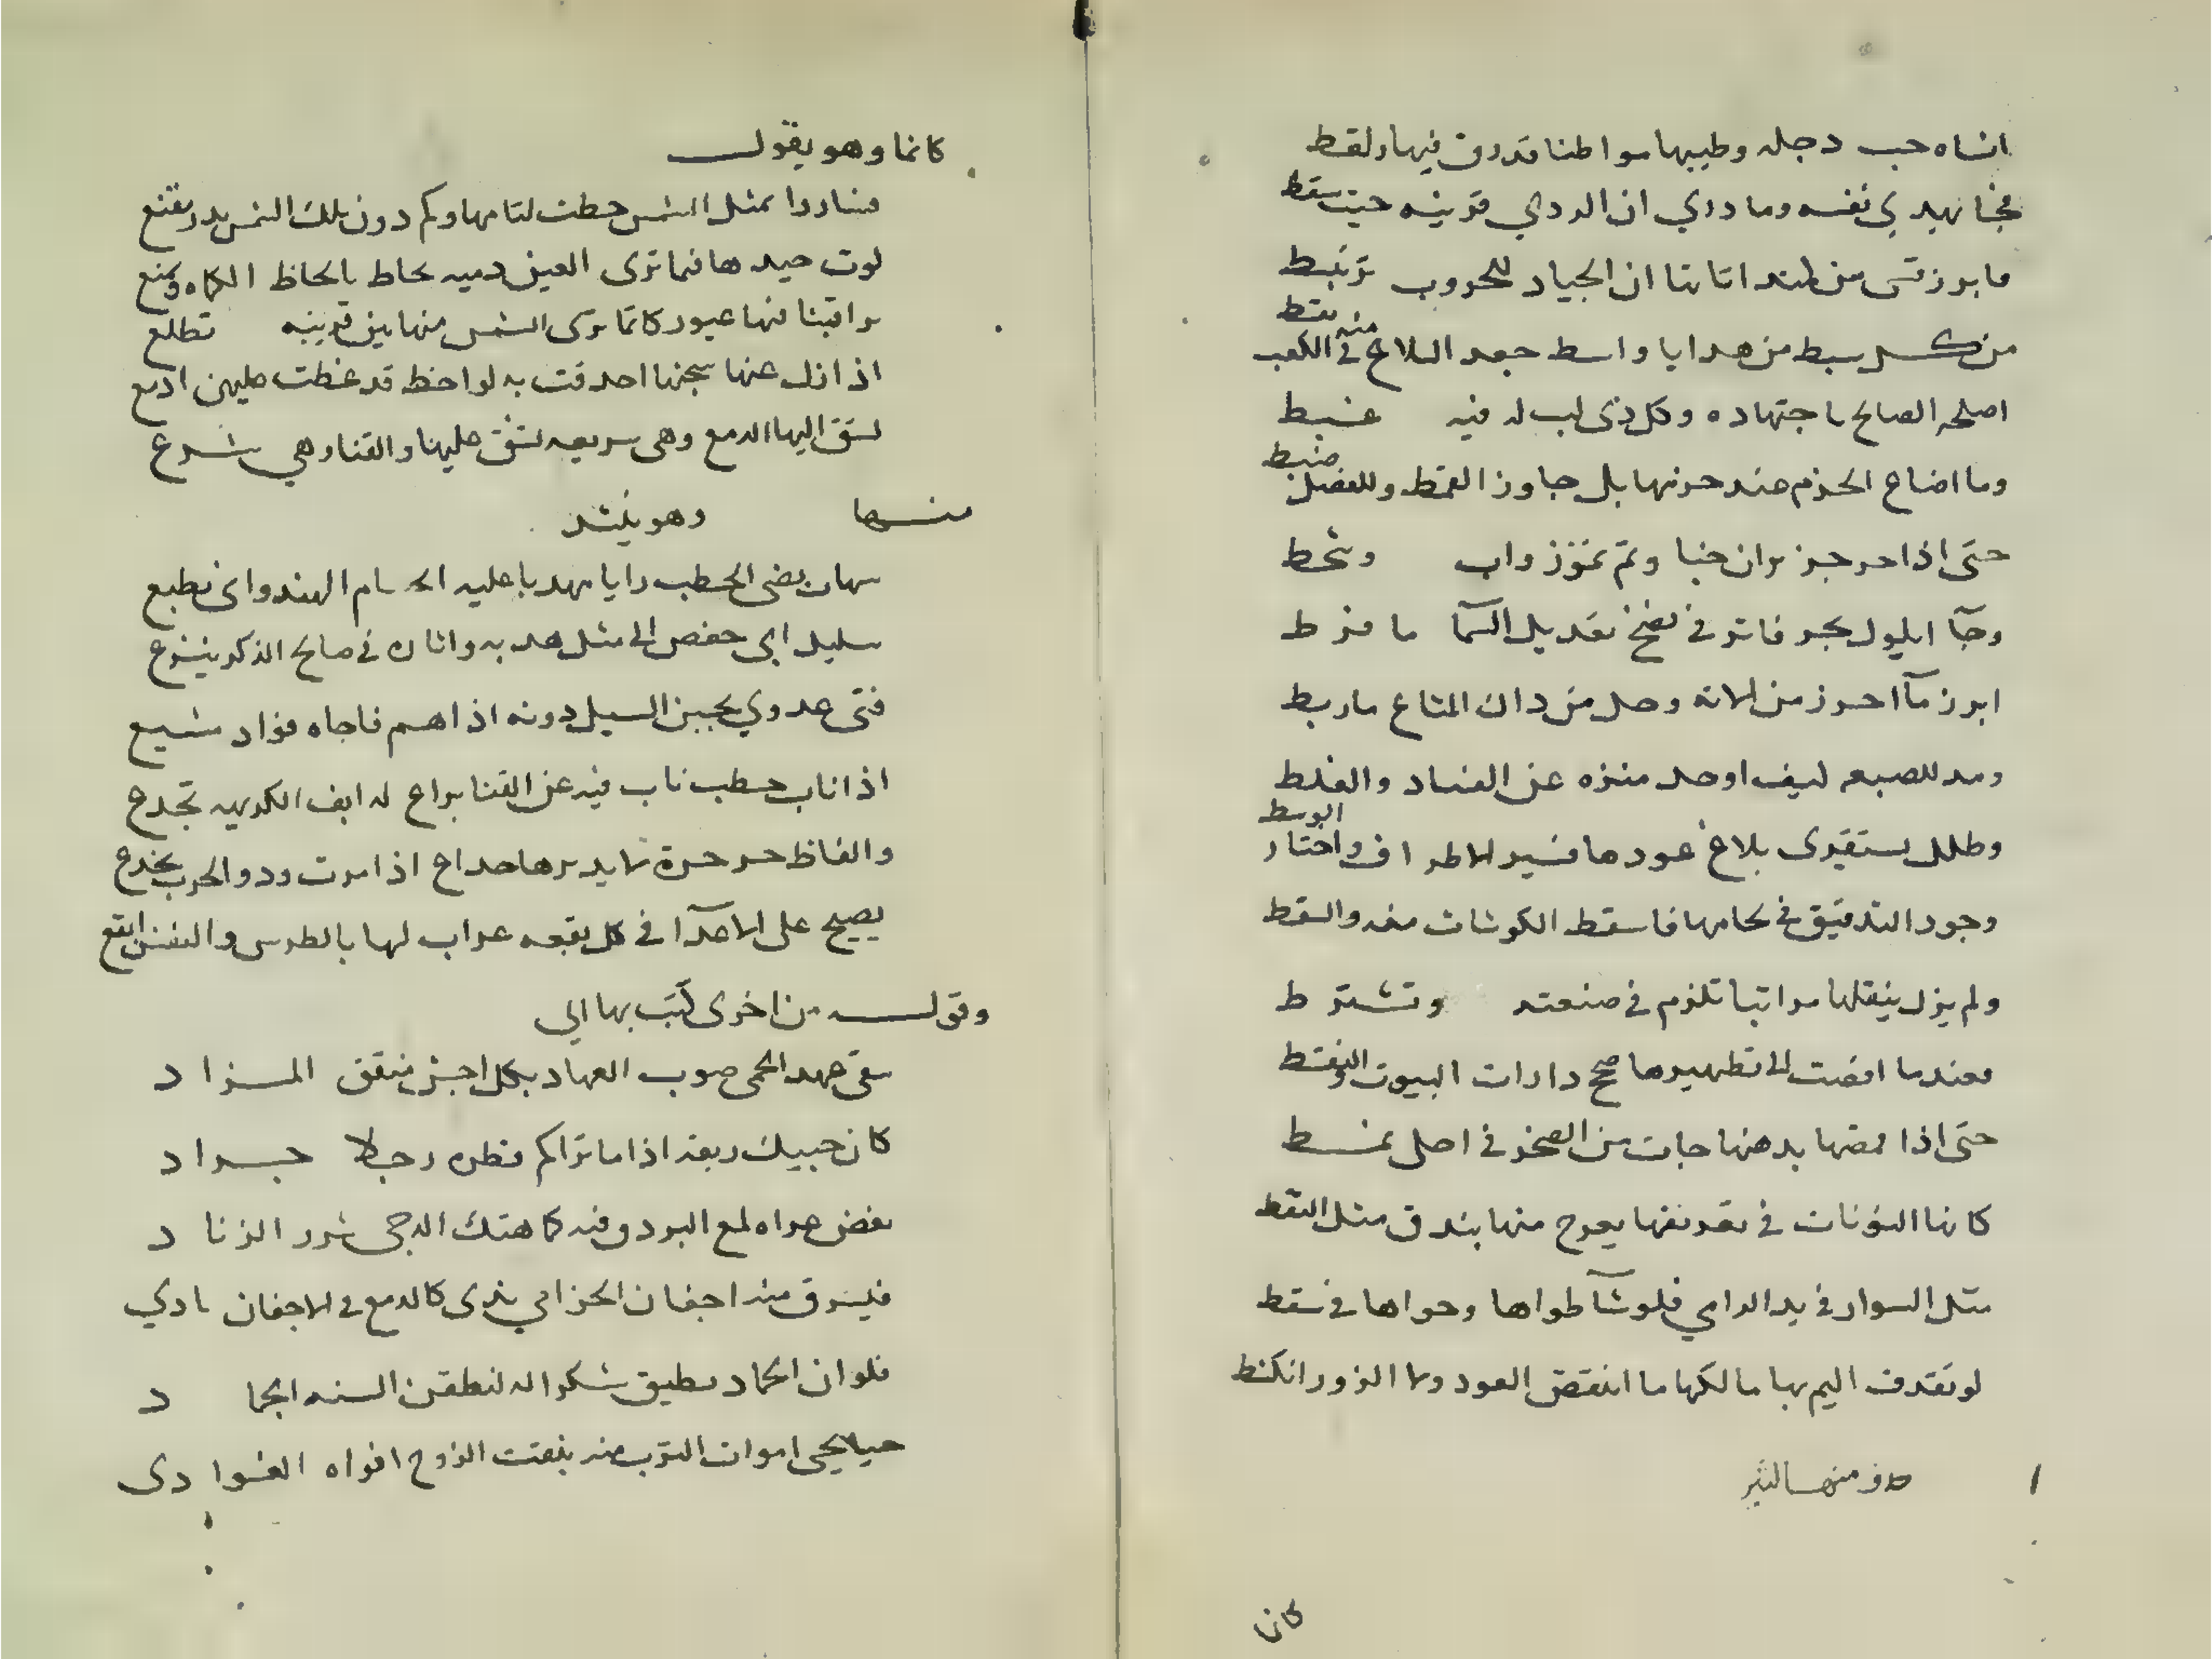 انساه حب دجله وطيبها مواطنا قدرق فيها ولقط
فجا يهدي نفسه وما دري ان الردي قرينه حيث سقط
ما برزت من لمتد اتانا ان الجياد للحروب ترتبط
من كل سبط من هدايا واسط جعد البلاغ منه في الكعب نقط
اصلحه الصالح باجتهاده وكل ذي لب له فيه غبط
وما اضاع الحزم عند حزمها بل جاوز القمط وللفضل ضبط
حتى اذا حرجز بران خبا وتم تموز واب وشحط
وجآ ايلول بحر فاتر في نضج تعديل السما ما فرط
ابرز ما احرز من الاته وحل من داك المتاع ما ربط
ومد للصبعه ليف اوحد منزه عن الفساد والغلط
وظل يستقري بلاغ عودها فسبر الاطراف واختار الوسط
وجود التدقيق في لحامها فاسقط الكوشات منه والسقط
ولم يزل ينقلها مراتبا تلزم في صنعته وتشترط
فعندما افضت الى تطهيرها صح دارات البيوت والنقط
حتى اذا قمصها بدهنها جات من الصخر في اصل نمط
كانها النونات في تعريقها يعوج منها بندق مثل النقط
مثل السوار في يد الرامي فلو شآ طواها وحواها في سقط
لو تقذف اليم بها مالكها ما انتقض العود ولا الزور انكشط
كان
كانما وهو يقول
فناروا بمثل الشمس حطت لثامها وكم دون تلك الشمس بدر مقنع
لوت جيدها فما ترى العين دميه تحاط بالحاظ الكماه وتمنع
يراقبنا فيها غيور كانما يرى الشمس منها بين قرينه تطلع
اذا ازل عنها سجنها احدقت به لواحظ قد غطت عليهن ادمع
تشق اليها الدمع وهي سريعه تشق علينا والقنا وهي شرع
منها وهو ينشد
شهاب يضي الخطب رايا مهدبا عليه الحسام الهندواني يطبع
سليل ابي حفص الى مثل هديه واثاره في صالح الذكر ينزع
فتى عدوي يحبس السيل دونه اذا هم ناجاه فواد مشيع
اذا ناب خطب ناب فيه عن القنا يراع له انف الكريهه تجدع
والفاظ حر حرة لا يديرها خداع اذا مرت ودو الحرب يخدع
يصيح على الاعدآ في كل بقعه غراب لها بالطرس والنقس ابقع
وقوله من اخرى كتب بها الي
سقى عهد الحمى صوب العهاد بكل اجش منتقن المزاد
كان حبيك ريقه اذا ما تراكم قطره رجلا جراد
تفض عراه لمع البرق منه كما هتك الدجى شرر الزناد
فيشرق منه اجفان الخزامي بندى كالدمع في الاجفان بادي
فلو ان الجماد يطيق شكرا له لنطقن السنه الجماد
حيا يحيي اموات الترب منه بنفث الروح افواه الغوادي